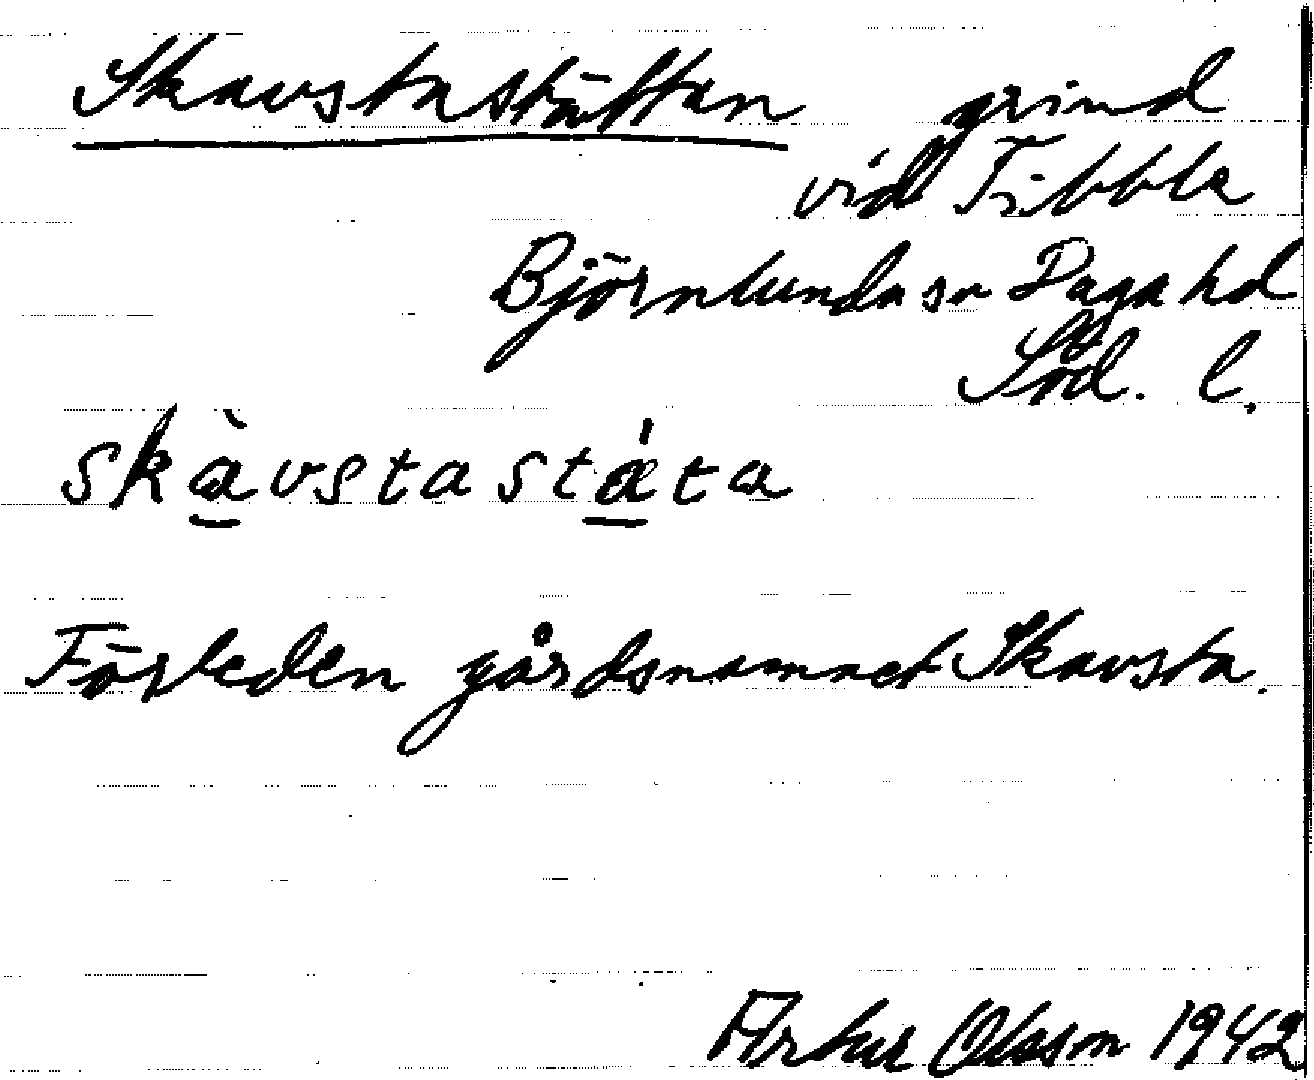 Skavstastättan grind
vid Tibble
Björnlunda sn Daga hd
Söd. l.
skàvstastǽta
Förleden gårdsnamnet Skavsta.
Artur Olsson 1942